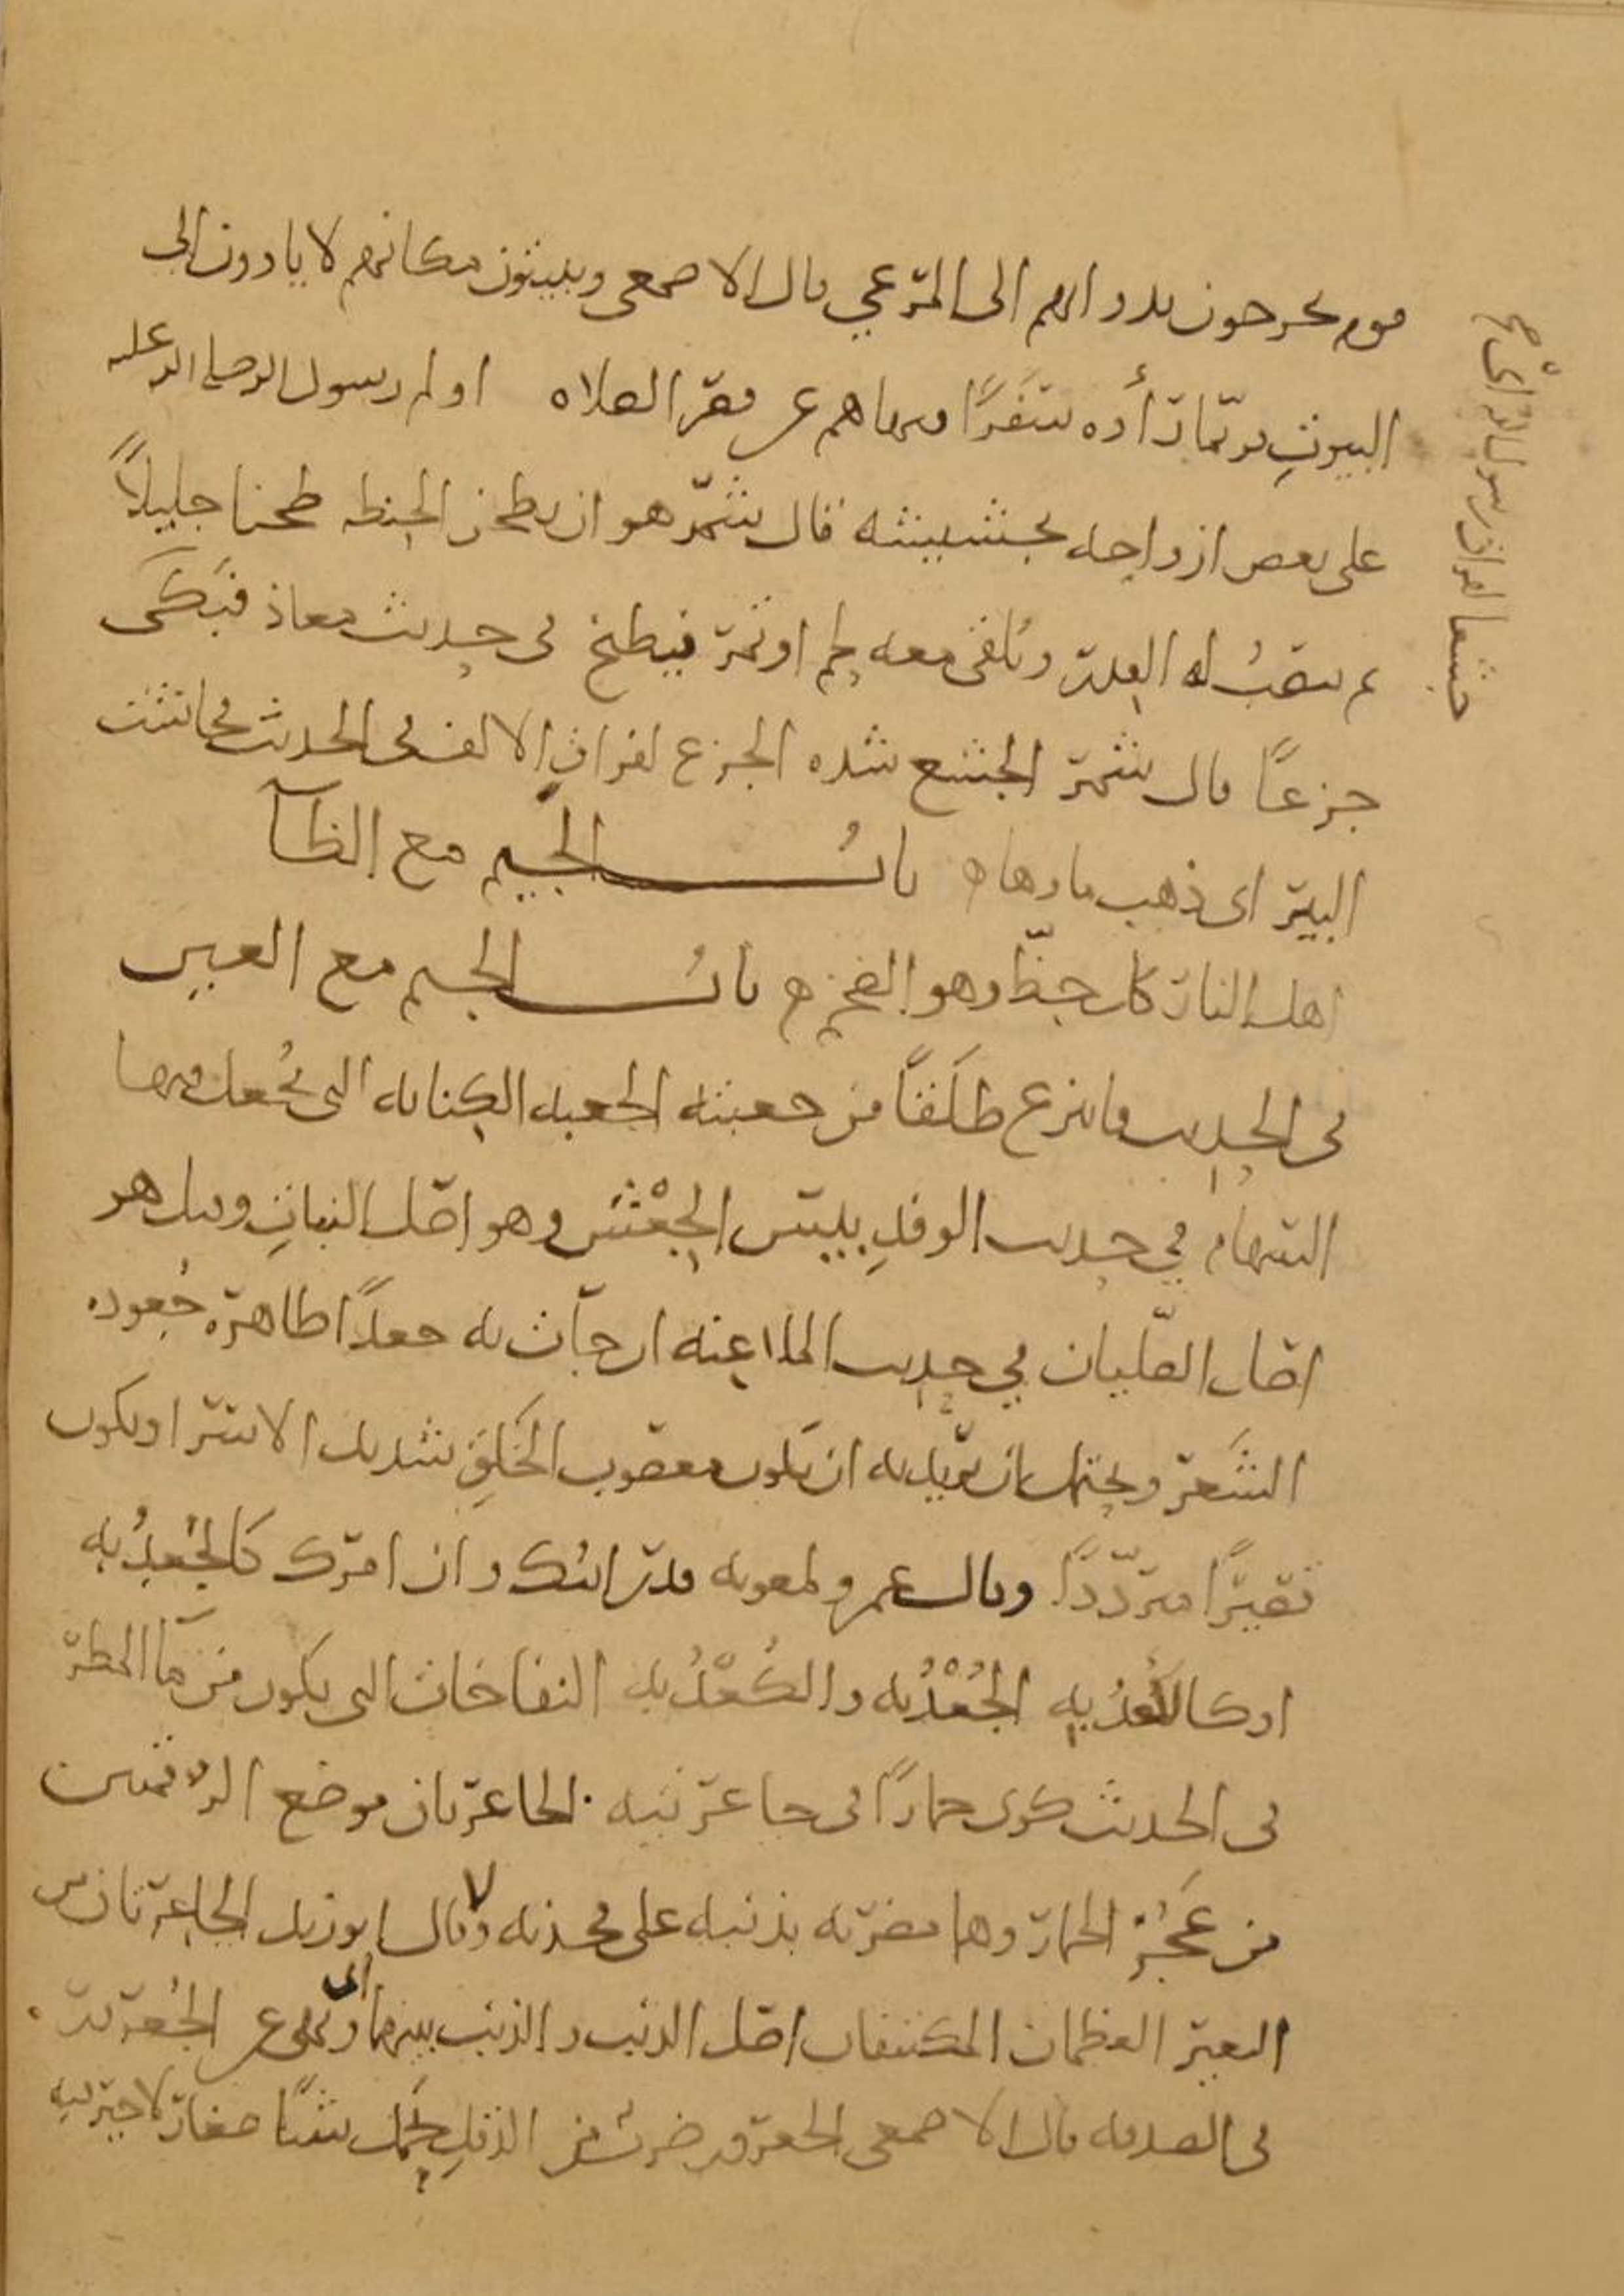 قوم يخرجون بدوابهم الى المرعى قال الاصمعي ويبيتون مكانهم لا ياوون الى
البيوت فربما رأوه سفرًا فنهاهم عن قصر الصلاه اولم رسول الله صلى الله عليه
على بعض ازواجه بجشيشه قال شمر هو ان يطحن الحنطه طحنا جليلاً
ثم ينصب له القدر ويلقى معه لحم او تمر فيطبخ في حديث معاذ فبكى
جزعًا قال شمر الجشع شده الجزع لفراق الالف في الحديث فجاشت
البير اى ذهب ماوها باب الجيم مع الظآ
اهل النار كل جظّ وهو الضخم باب الجيم مع العين
في الحديث فانتزع طلقًا من جعبته الجعبه الكنانه التى يُجعل فيها
السهام في حديث الوفدِ بيبس الجِعْثِن وهو اصل النبات وقيل هو
اصل الصليان في حديث الملاعنه ان جآت به جعدًا ظاهره جُعوده
الشعر ويحتمل ان يريد به ان يكون معصوب الخلق شديد الاسر او يكون
قصيرًا مترددًا وقال عمرو لمعويه قد رايتك وان امرك كالجُعدُبه
او كالكُعدُبه الجُعْدُبه والكُعْدُبه النفاخات التى يكون من مآ المطر
في الحديث كوى حمارًا في جاعرتيه الجاعرتان موضع الرقمتين
من عَجُز الحمار وهما مضربه بذنبه على فخذيه وقال ابو زيد الجاعرتان من
البعير العظمان المكتنفان اصل الذنب والذنب بينهما ونهى عن الجُعرور
في الصدقه قال الاصمعى الجعرور ضرب من الدقل يحمل شيًا صغارًا لا خير فيه
جشعا لفراق رسول الله اى جزع